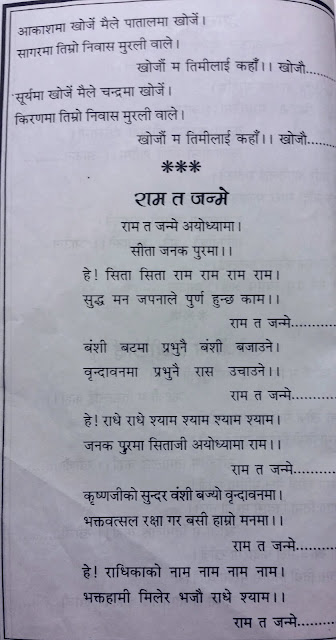 आकाशमा खोजें मैले पातालमा खोजें।
सागरमा तिम्रो निवास मुरली वाले।
खोजौं म तिमीलाई कहाँ।। खोजौ..........
सूर्यमा खोजें मैले चन्द्रमा खोजें।
किरणमा तिम्रो निवास मुरली वाले।
खोजौं म तिमीलाई कहाँ।। खोजौ..........
***
राम त जन्मे
राम त जन्मे अयोध्यामा।
सीता जनक पुरमा।।
हे! सिता सिता राम राम राम राम।
सुद्ध मन जपनाले पुर्ण हुन्छ काम।।
राम त जन्मे..........
बंशी बटमा प्रभुनै बंशी बजाउने।
वृन्दावनमा प्रभुनै रास उचाउने।।
राम त जन्मे..........
हे! राधे राधे श्याम श्याम श्याम श्याम।
जनक पुरमा सिताजी अयोध्यामा राम।।
राम त जन्मे..........
कृष्णजीको सुन्दर वंशी बज्यो वृन्दावनमा।
भक्तवत्सल रक्षा गर बसी हाम्रो मनमा।।
राम त जन्मे..........
हे! राधिकाको नाम नाम नाम नाम।
भक्तहामी मिलेर भजौ राधे श्याम।।
राम त जन्मे..........